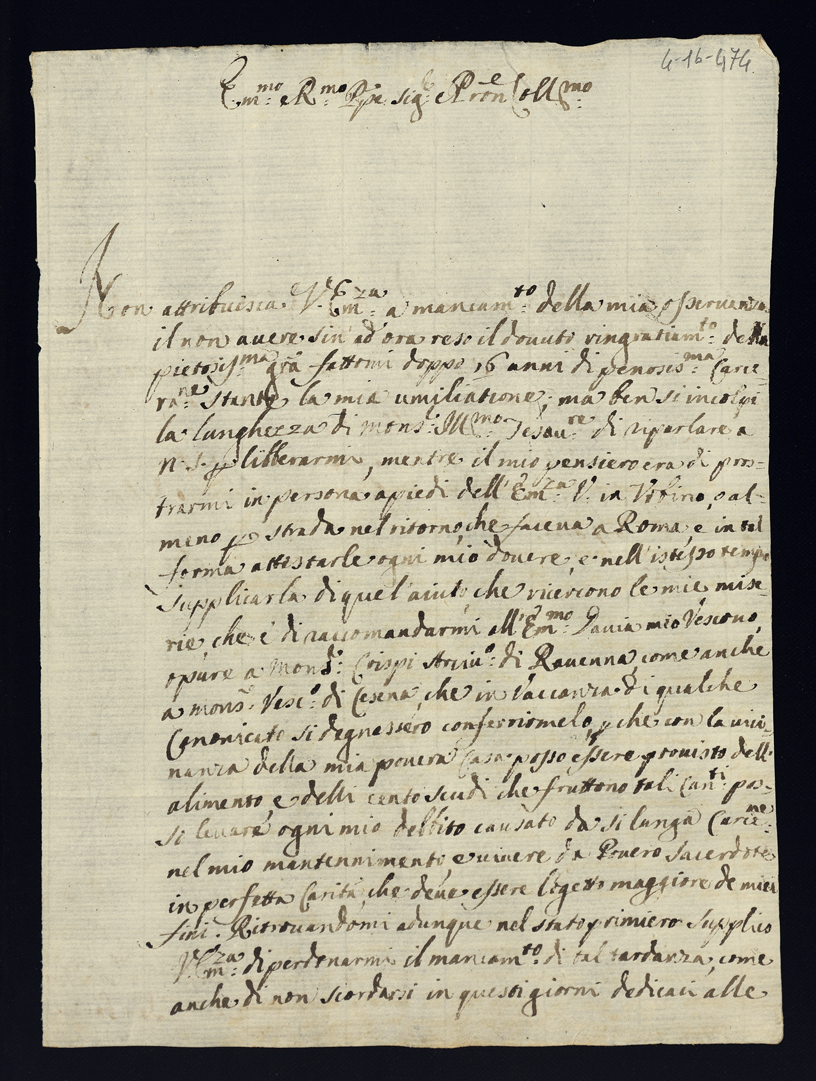 4-16-474.
Emmo: e Rmo: Ppe: Sigr: e Pron Collmo:
Non attribuisca V. Emza: a mancamto: della mia osseruanza
il non auere sin' ad' ora reso il douuto ringratiamto: della
pietosisma: gra fattomi doppo 16 anni di penosisma: Carce-
rane: Stente, la mia umiliatione; ma ben si incolpi
la lunghezza di Monsr: Illmo: Tesaure: di riparlare a
N. S. p libberarmi, mentre il mio pensiero era di pros-
trarmi in persona a piedi dell' Emza: V. in Vrbino, o al-
meno p strada nel ritorno che faceua a Roma, e in tal
forma attestarle ogni mio douere, e nell' istesso tempo
supplicarla di quel' aiuto che ricercono le mie mise-
rie, che è di raccomandarmi all' Emmo: Dauia mio Vescouo,
opure a Monsr: Crispi Arciuo: di Rauenna, come anche
a Monsr: Vesco: di Cesena, che in Vaccanza di qualche
Canonicato si degnassero conferriomelo, p che con la uici-
nanza della mia pouera Casa posso essere prouisto dell'
alimento, e delli cento scudi che fruttono tali Canti: pos-
so leuare ogni mio debbito causato da si lunga Carcene:
nel mio mantennimento, e uiuere da Pouero Sacerdote
in perfetta Carità, che deue essere l'ogetto maggiore de miei
fini. Ritrouandomi adunque nel stato primiero supplico
V. Emza: di perdonarmi il mancamto: di tal tardanza, come
anche di non scordarsi in questi giorni dedicati alle